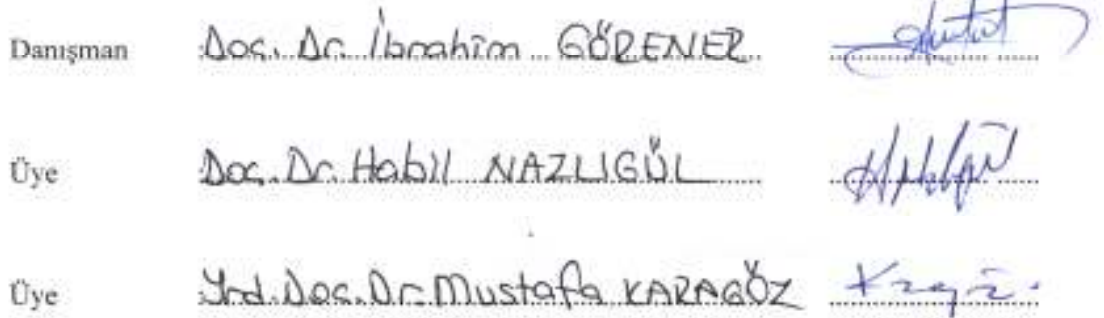 Danışman :Doç. Dr. İbrahim GÖRENER
Üye :Doç. Dr. Habil NAZLIGÜL
Üye :Yrd. Doç. Dr. Mustafa KARAGÖZ